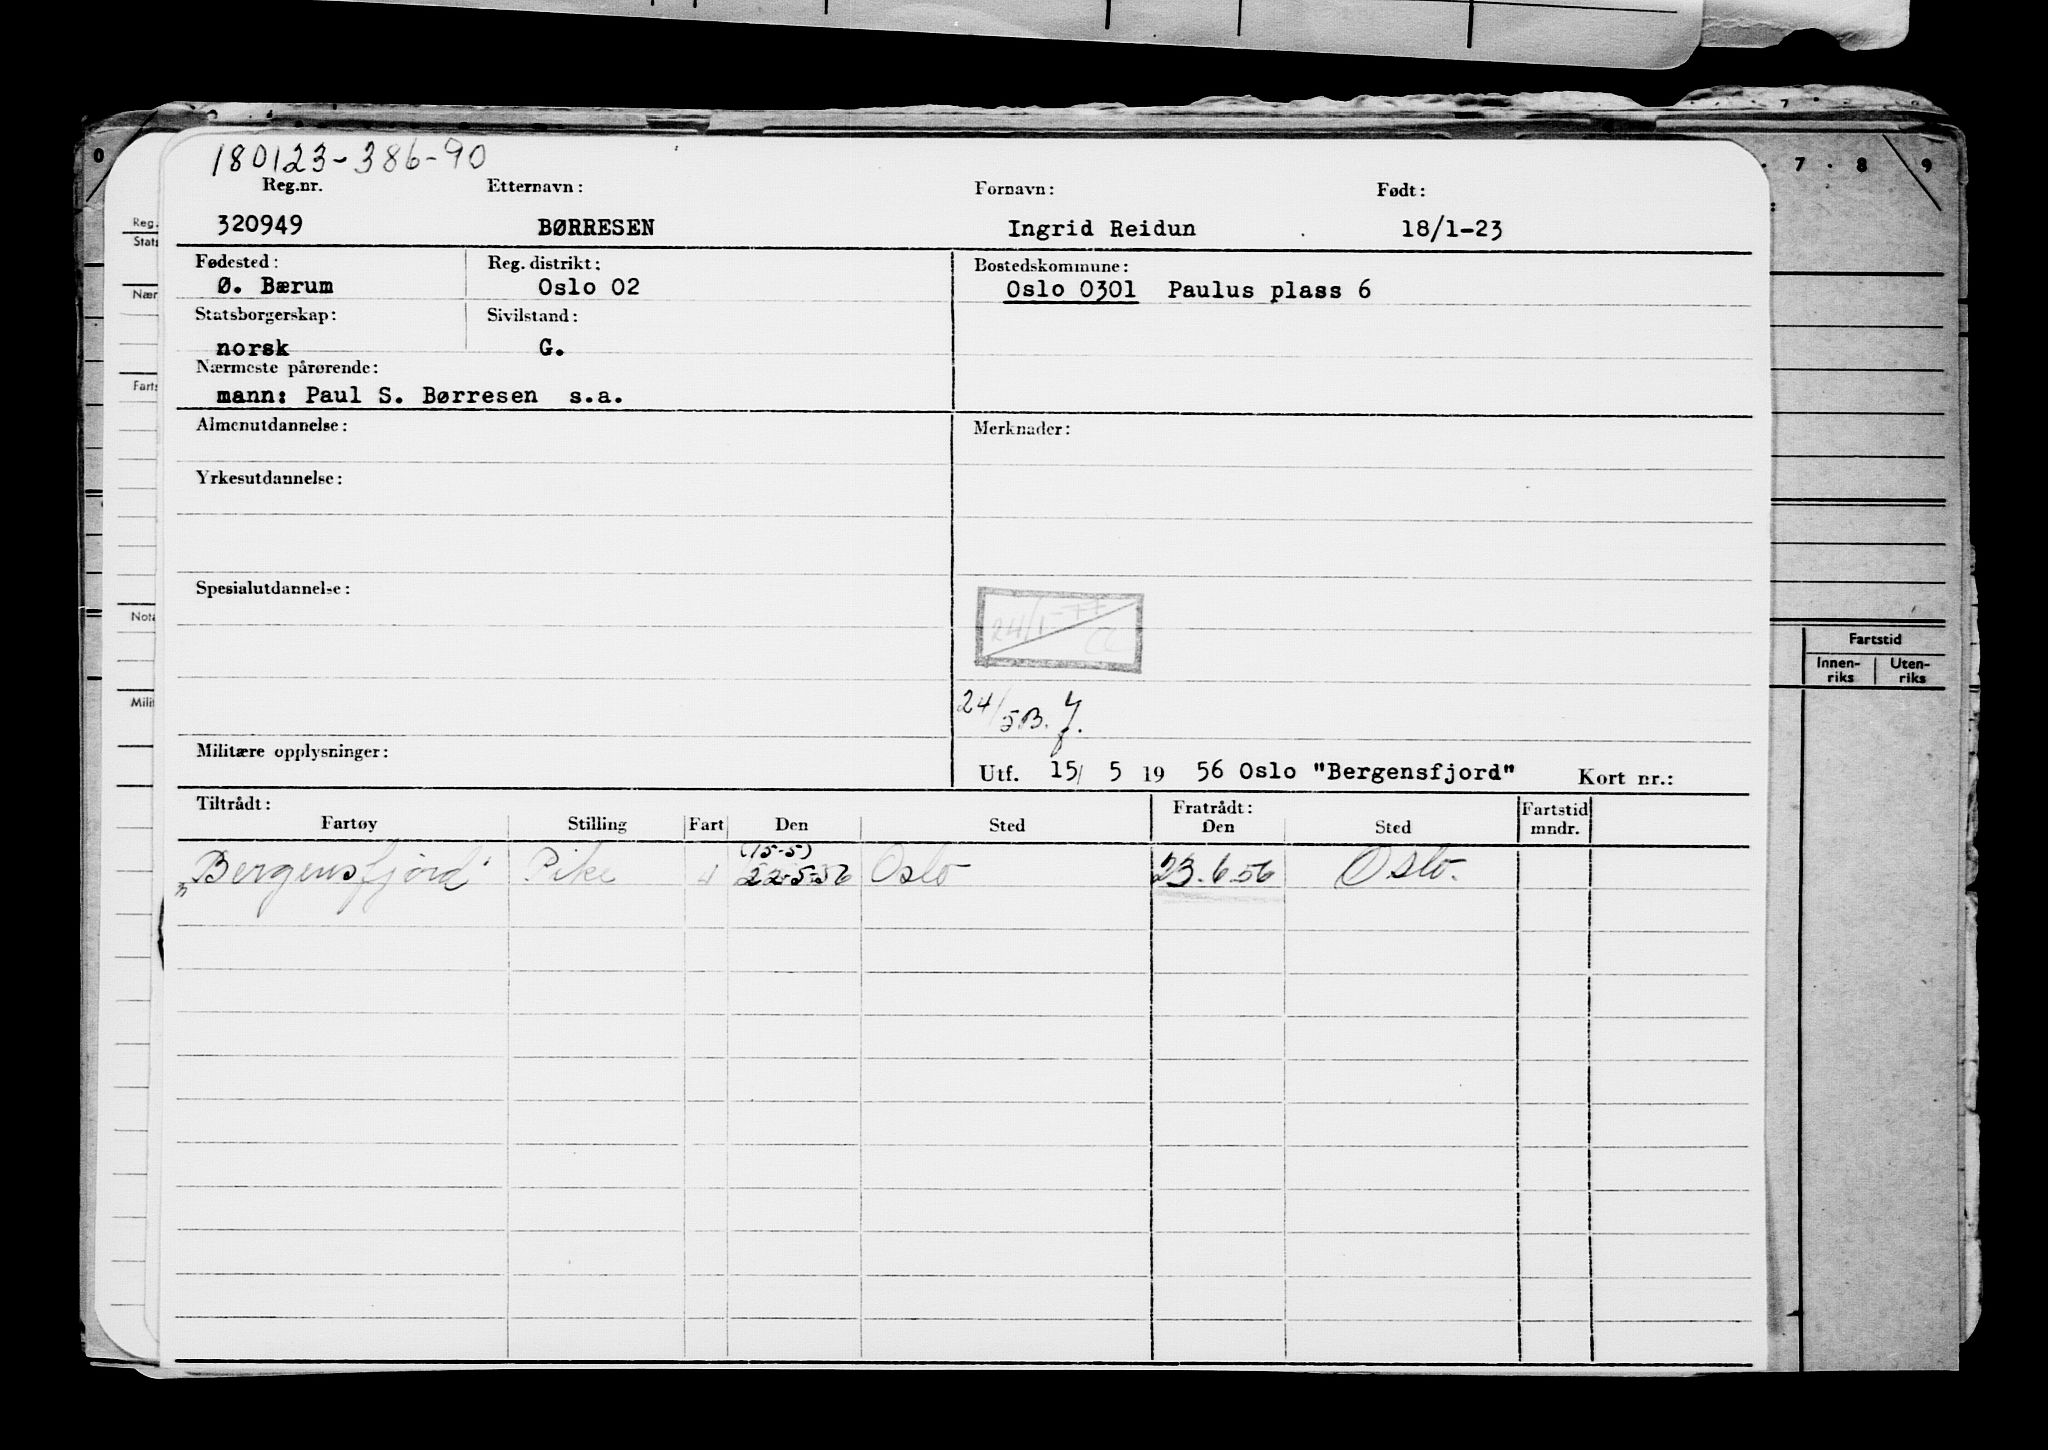 180123-386-90
Reg.nr. Etternavn: Fornavn: Født:
320949 BØRRESEN Ingrid Reidun 18/1-23
Fødested: Reg. distrikt: Bostedskommune:
Ø. Bærum Oslo 02 Oslo 0301 Paulus plass 6
Statsborgerskap: Sivilstand:
norsk G.
Nærmeste pårørende:
mann: Paul S. Børresen s.a.
Almenutdannelse: Merknader:
Yrkesutdannelse:
Spesialutdannelse:
24/1-77
24/5 B. J.
Militære opplysninger:
Utf. 15/ 5 19 56 Oslo "Bergensfjord" Kort nr.:
Tiltrådt: Fratrådt: Fartstid
Fartøy Stilling Fart Den Sted Den Sted mndr.
(15-5)
"Bergensfjord" Pike 4 22-5-56 Oslo 23.6.56 Oslo.
0 7 8 9
7
Reg.
Stats
Nær
Farts
Nota
Milit
Fartstid
Innen-
riks
Uten-
riks